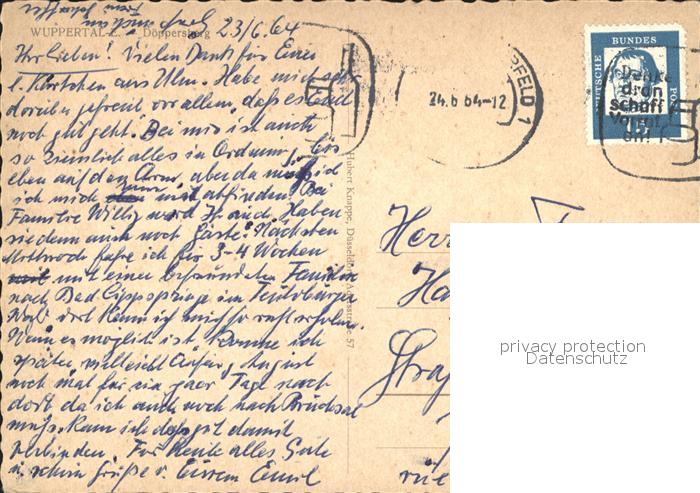 WUPPERTAL-E. Döppersberg
23/6.64
Ihr Lieben! Vielen Dank für Eure
l. Kärtchen aus Ulm. Habe mich sehr
darüber gefreut vor allem, daß es Euch
noch gut geht. Bei mir ist auch
so ziemlich alles in Ordnung, bis
eben auf den Arm, aber da muß ich
ich mich nun mit abfinden. Bei
Familie Willy wird Haben
sie denn auch noch Gäste? Nächsten
Mittwoch fahre ich für 3-4 Wochen
mit einer befreundeten Familie
nach Bad Lippspringe im Teutoburger
Wald dort kann ich mich so recht erholen.
Wenn es möglich ist, komme ich
später vielleicht Anfang August
noch mal für ein paar Tage nach
dort da ich auch noch nach Bruchsal
muß. Kann ich das gut damit
verbinden. Für heute alles Gute
u. schöne Grüße v. Eurem Emil
Hubert Knappe, Düsseldorf, 57
24.6.64-12
FELD 1
DEUTSCHE BUNDES POST
15
Denke
dran
schaff
Vorrat
an!
Herr
privacy protection
Datenschutz